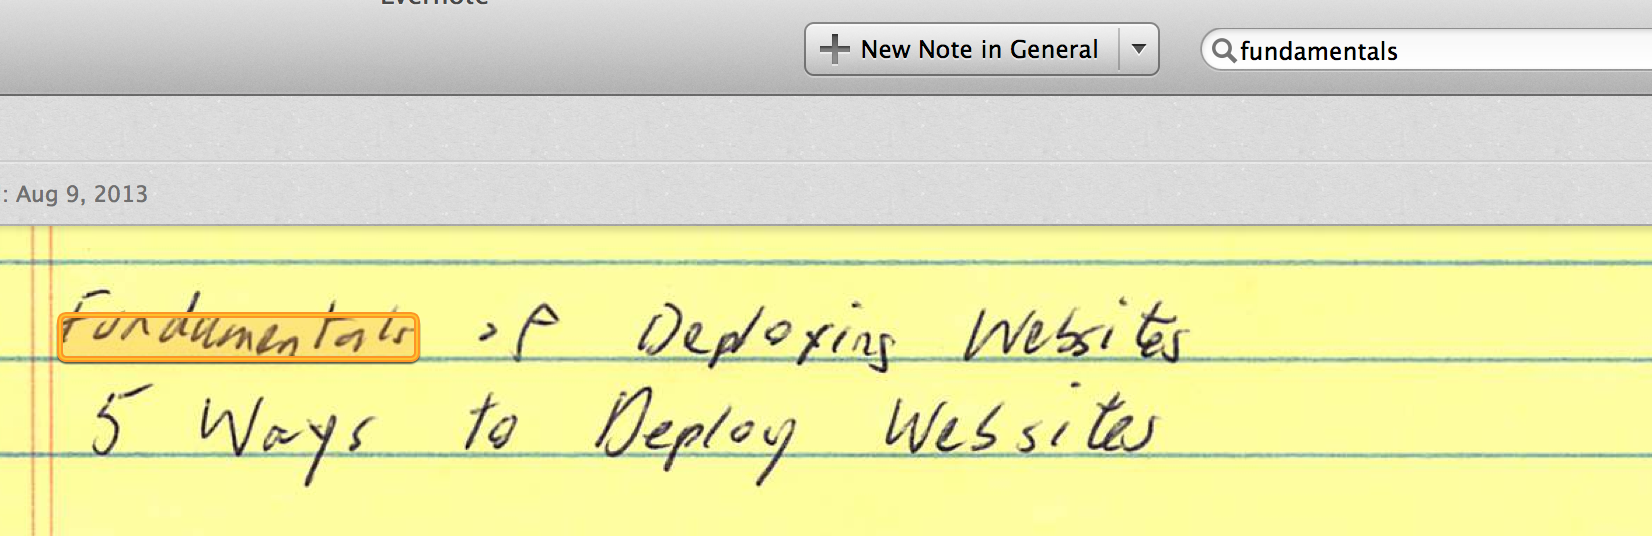 Evernote
New Note in General
fundamentals
: Aug 9, 2013
Fundamentals of Deploying Websites
5 Ways to Deploy Websites